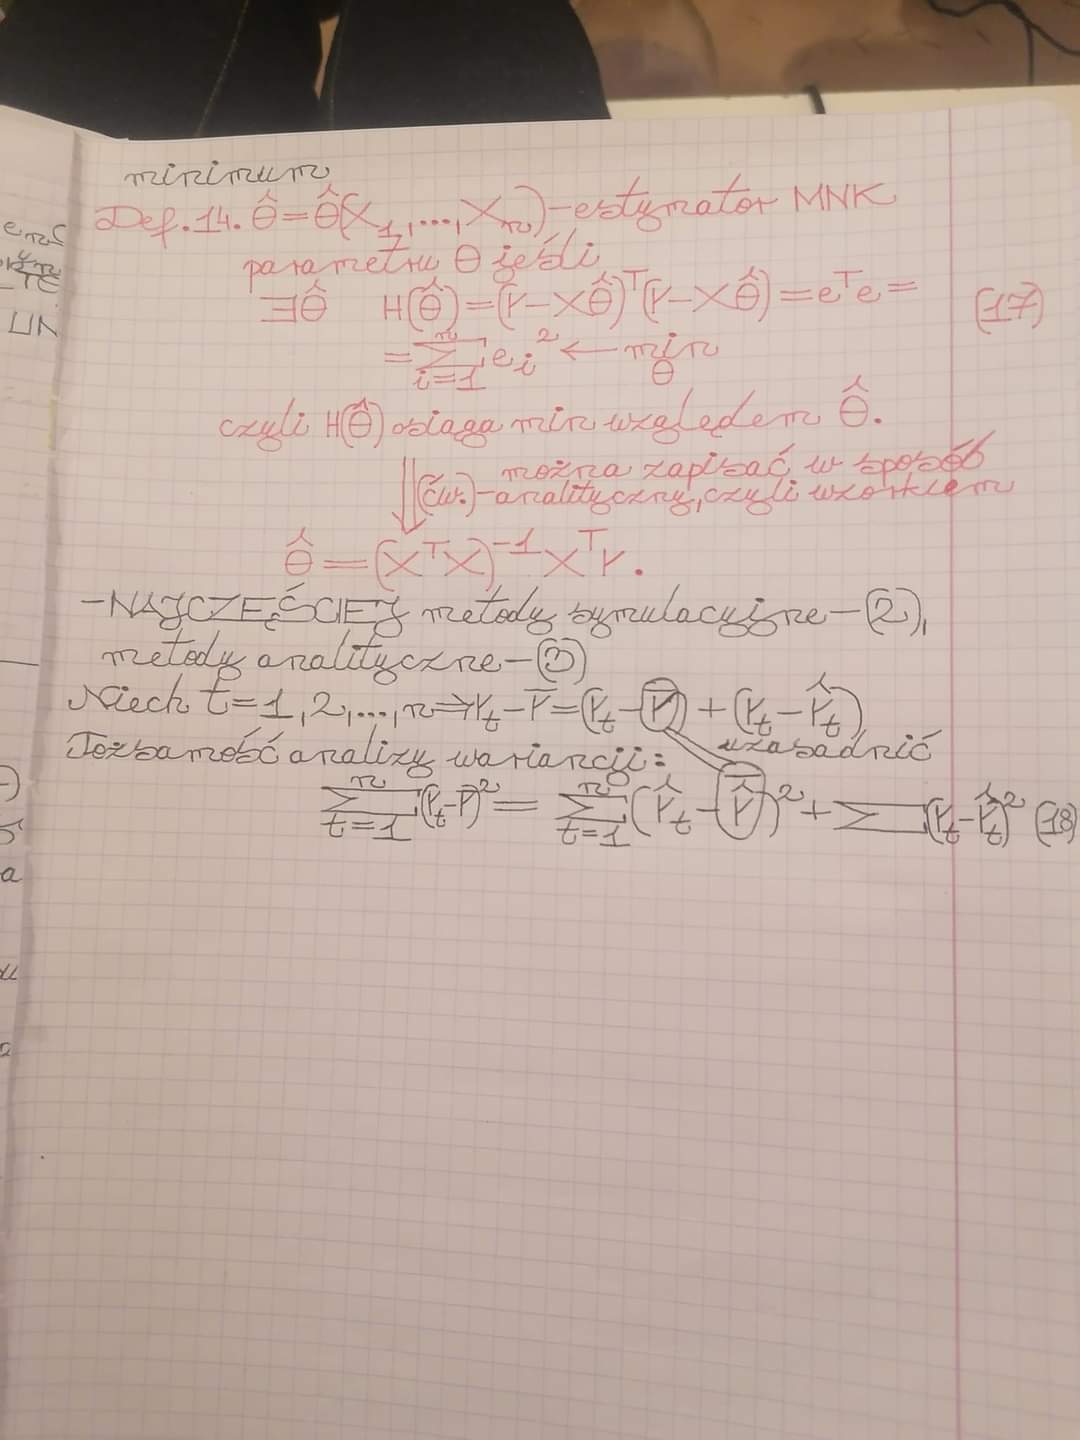 minimum
Def. 14. θ̂ = θ̂(X₁, ..., Xₙ) - estymator MNK
parametru θ jeśli
∃θ̂ H(θ̂) = (Y - Xθ̂)ᵀ(Y - Xθ̂) = eᵀe = (17)
= ∑ᵢ₌₁ⁿ eᵢ² ← min θ
czyli H(θ̂) osiąga min względem θ̂.
⇓ (ćw.) - można zapisać w sposób
analityczny, czyli wzorkiem
θ̂ = (XᵀX)⁻¹XᵀY.
- NAJCZĘŚCIEJ metody symulacyjne - (2),
metody analityczne - (3)
Niech t = 1, 2, ..., n ⇒ Yₜ - Ȳ = (Yₜ - Ȳ) + (Yₜ - Ŷₜ)
uzasadnić
Tożsamość analizy wariancji:
∑ₜ₌₁ⁿ (Yₜ - Ȳ)² = ∑ₜ₌₁ⁿ (Ŷₜ - Ŷ̄)² + ∑ (Yₜ - Ŷₜ)² (18)